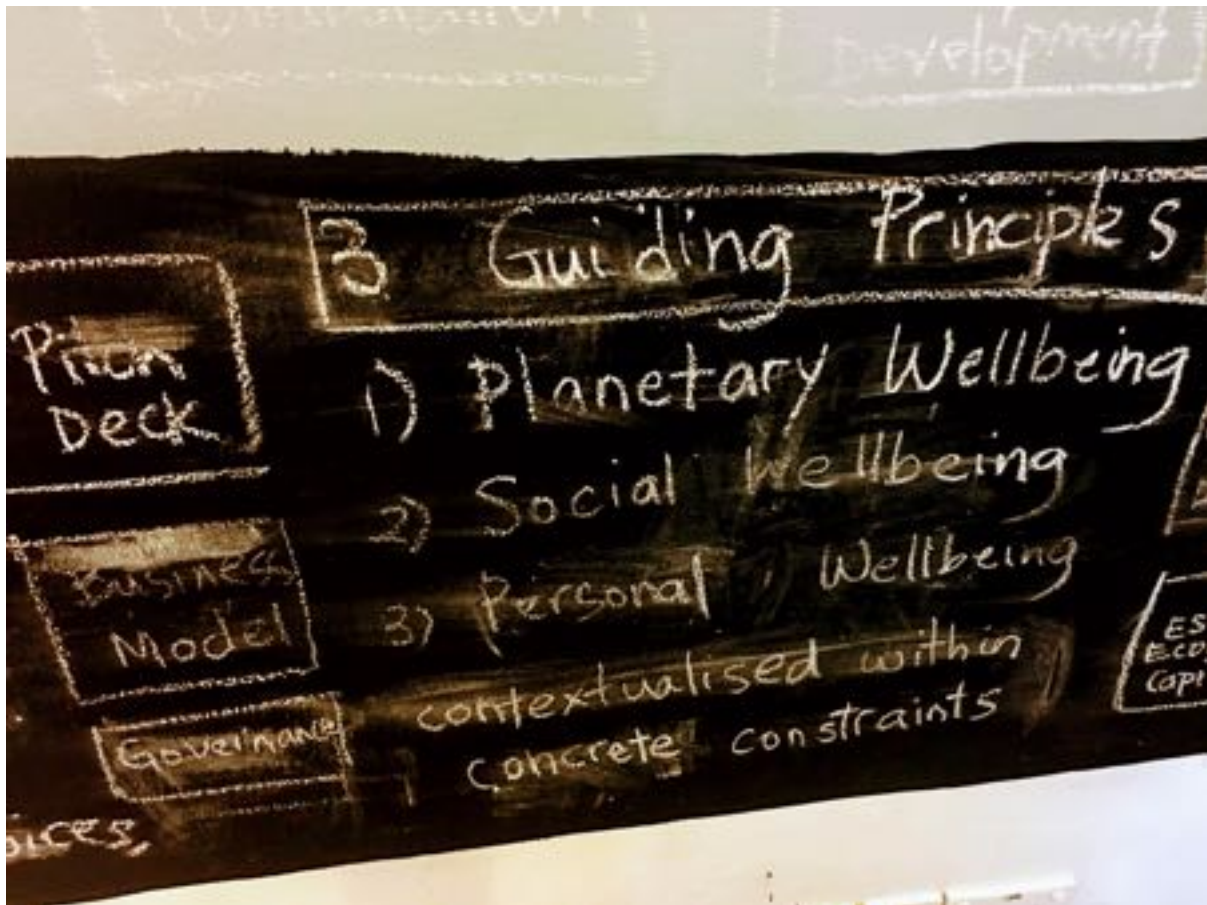 Development
3 Guiding Principles
Pitch
Deck
1) Planetary Wellbeing
2) Social Wellbeing
3) Personal Wellbeing
contextualised within
concrete constraints
Business
Model
Governance